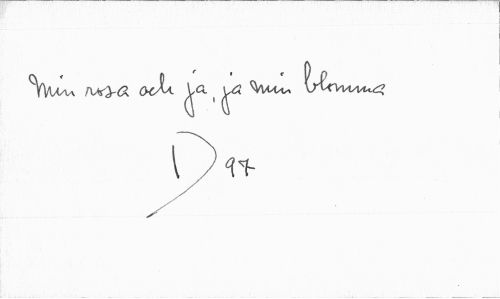 Min rosa och ja, ja min blomma
D 97